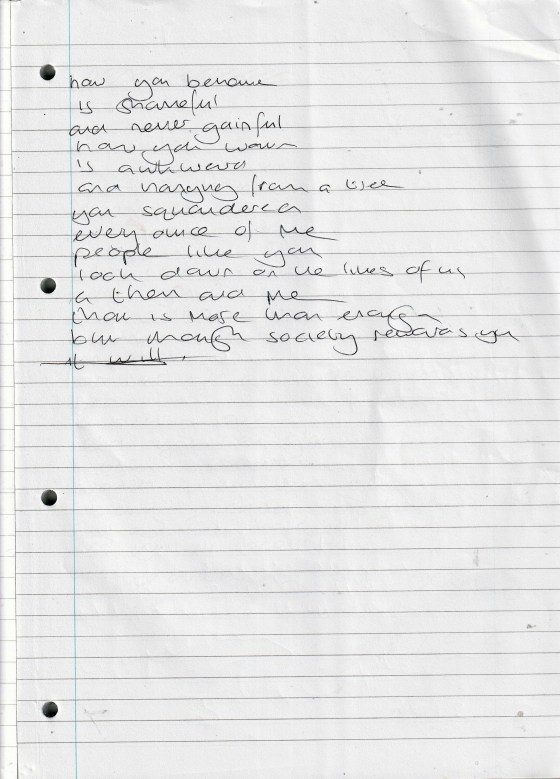 how you behave
is shameful
and never gainful
how you work
is awkward
and hanging from a tree
you squandered
every ounce of me
people like you
look down on the likes of us
a them and me
that is more than enough
but though society rewards you
it will.